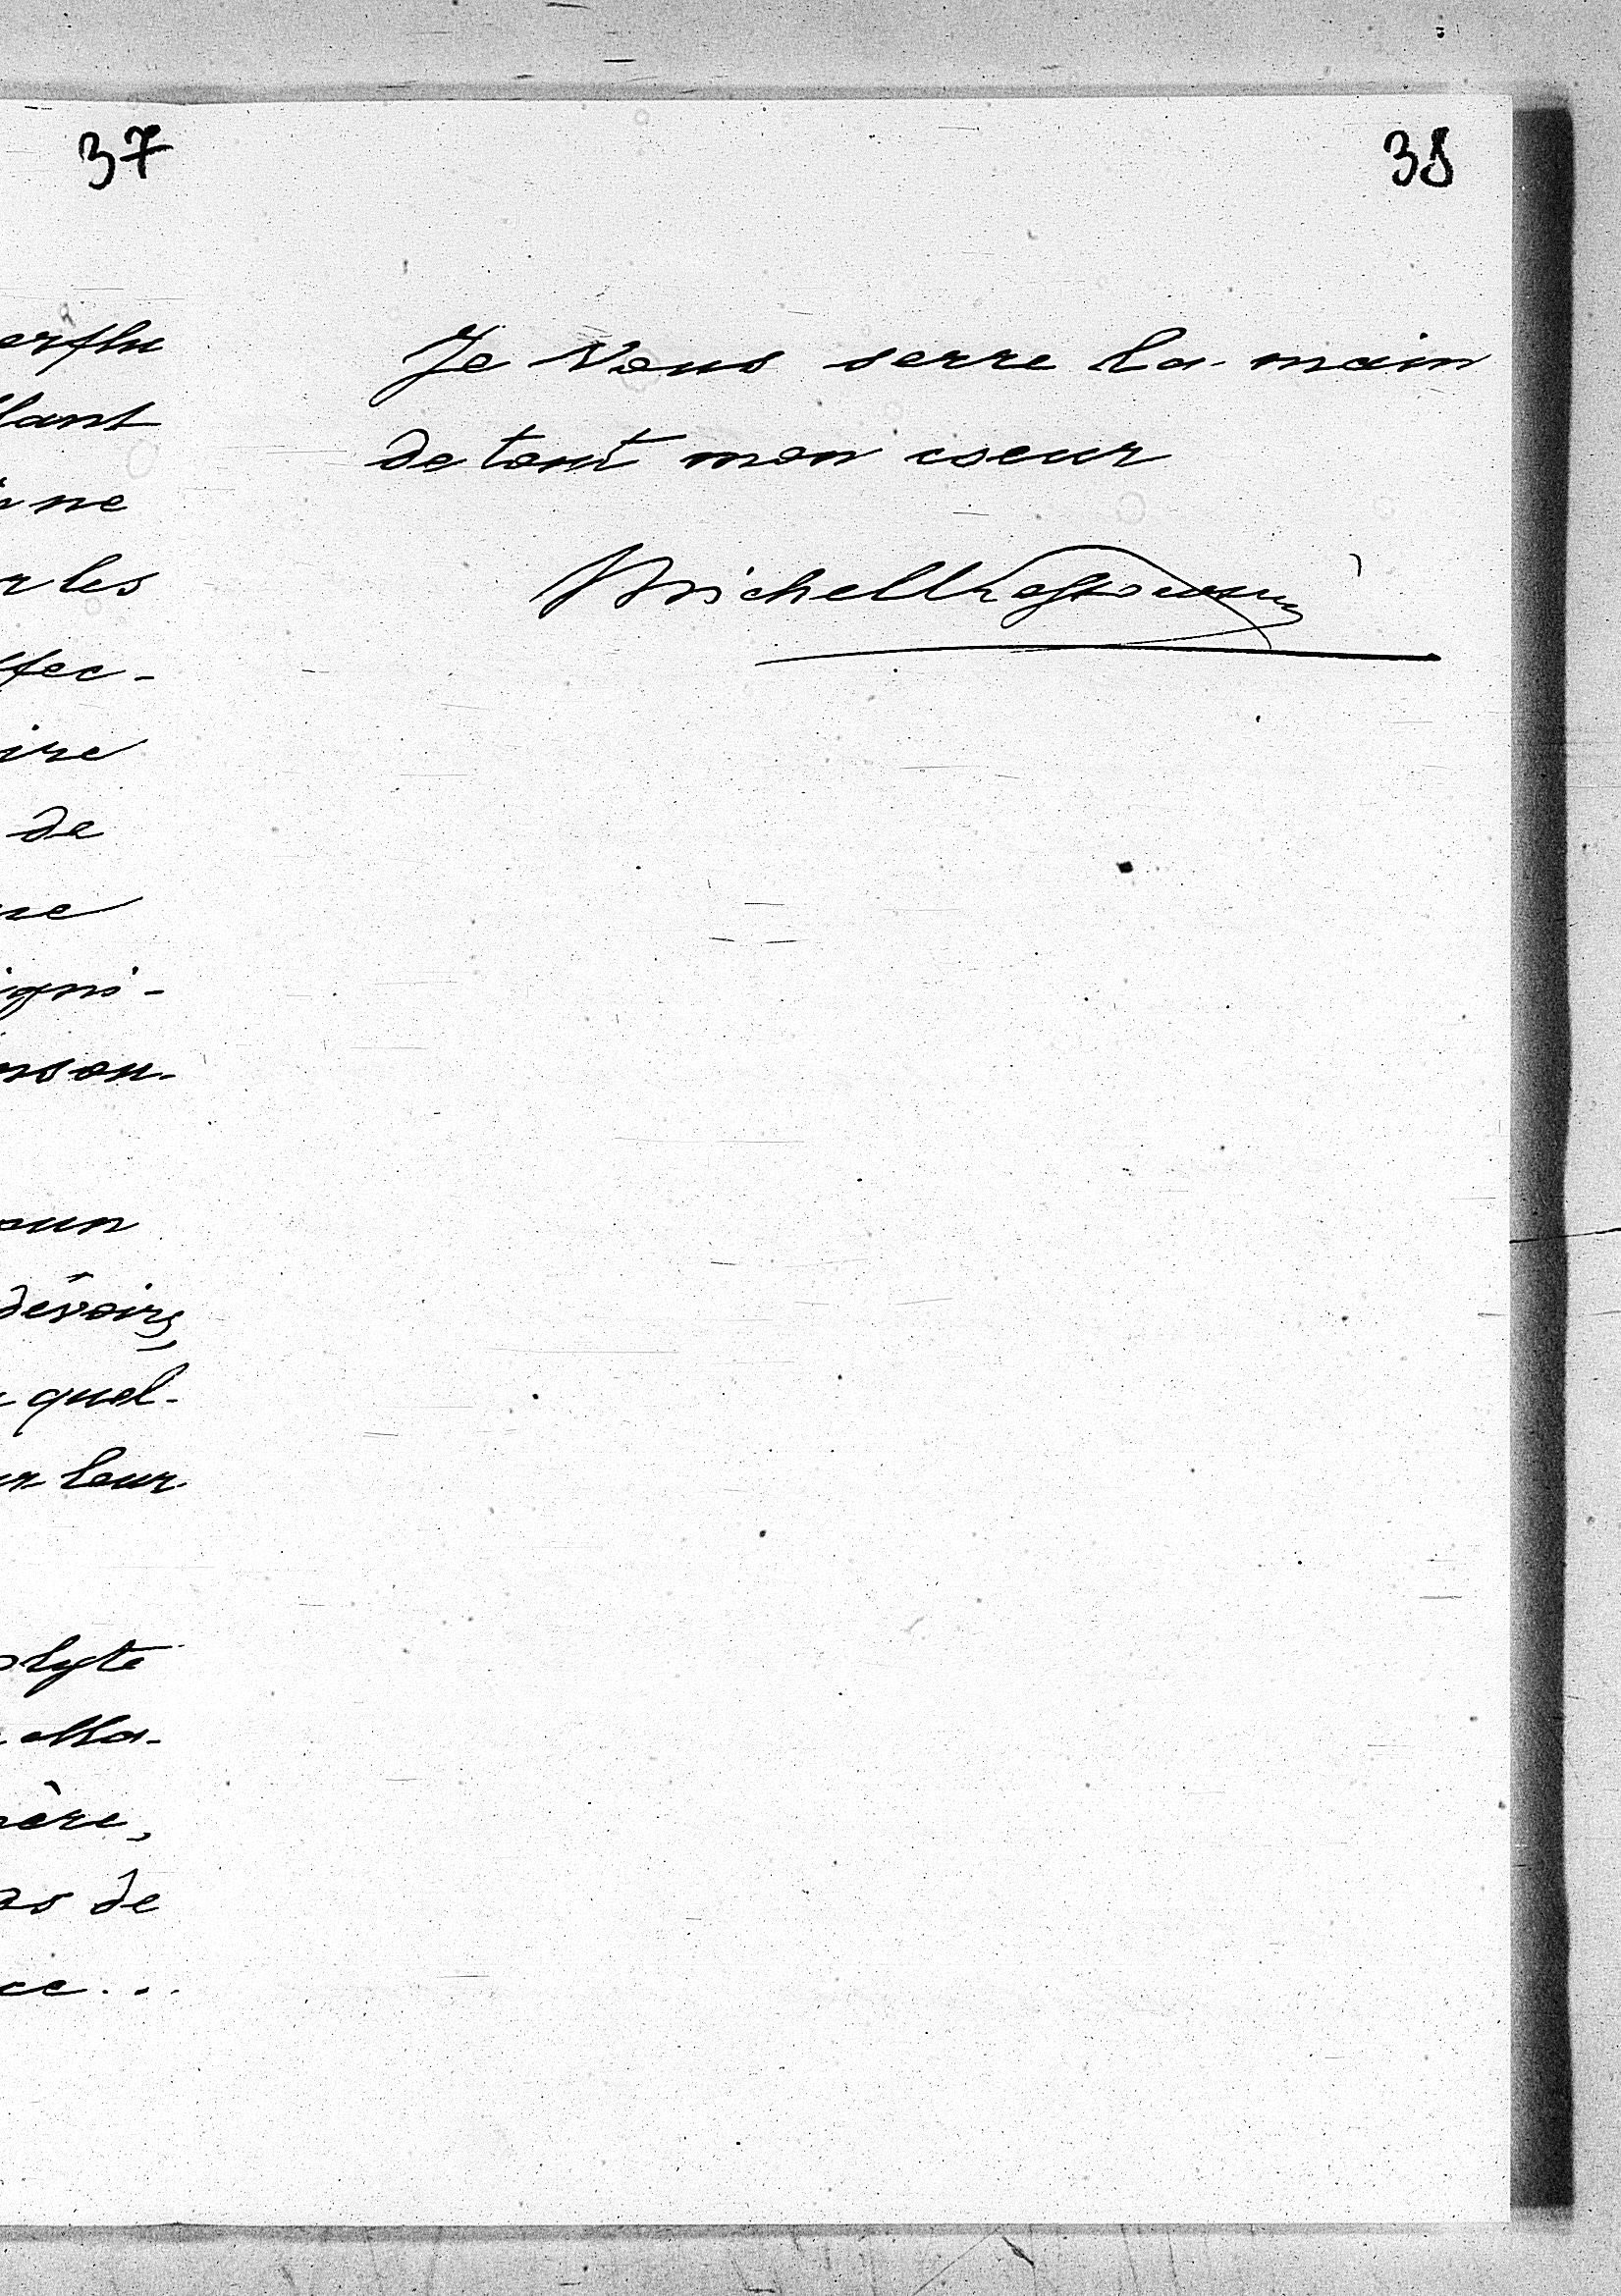 37
erflu
llant
nne
r les
ffec-
ire
de
ne
igni-
nson-
oun
devoirs,
quel-
ur leur
olyte
Ma-
mère,
as de
ce...
38
Je Vous serre la main
de tout mon coeur
Michel